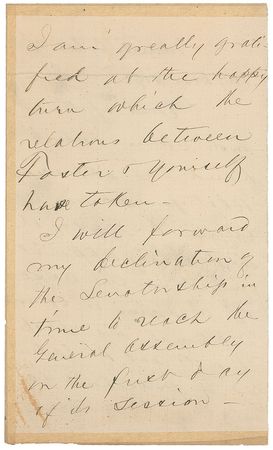 I am greatly grati-
fied at the happy
turn which the
relations between
Foster & yourself
have taken —
I will forward
my declination of
the Senatorship in
time to reach the
General Assembly
on the first day
of its session —